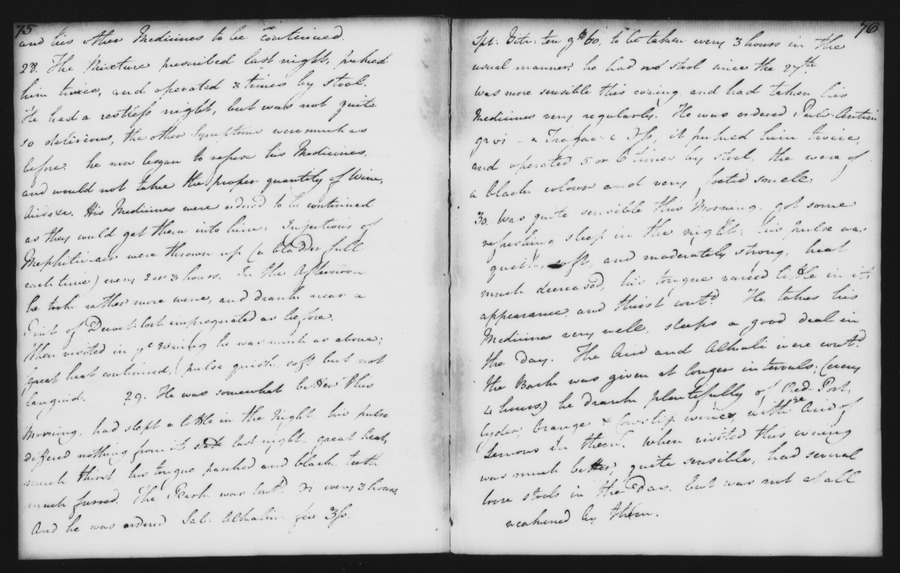 75
and his other Medicines to be continued.
28. The Mixture prescribed last night, puked
him twice, and operated 2 times by stool.
He had a restless night, but was not quite
so delirious, the other Symptoms were much as
before. he now began to refuse his Medicines,
and would not take the proper quantity of Wine,
His Medicines were ordered to be continued
as they could get them into him; Injections of
Mephitic air were thrown up (a bladder full
each time) every 2 or 3 hours. In the Afternoon
he took rather more wine, and drank near a
Pint of Decoct. Cort impregnated as before.
When visited in ye Evening he was much as above;
great heat continued, pulse quick soft but not
languid. 29. He was somewhat better this
Morning. had slept a little in the Night. his pulse
differed nothing from its state last night. great heat,
much thirst his tongue parched and black, teeth
much furred. The Bark was contd. every 2 hours,
And he was ordered Sal: Alkalin
76
Spt: Vitr: ten gtts 60, to be taken every 3 hours in the
usual manner. he had no stool since the 27th
was more sensible this evening and had taken his
Medicines very regularly. He was ordered Pulv: Antim
it puked him twice,
and operated 5 or 6 times by stool, the were of
a black colour and very foetid smell.
30. Was quite sensible this Morning, got some
refreshing sleep in the night; his pulse was
quick, soft and moderately strong, heat
much decreased, his tongue varied little in its
appearance and thirst contd. He takes his
Medicines very well, sleeps a good deal in
the Day. The Acid and Alkali were contd.
the Bark was given at longer intervals; (every
4 hours) he drank plentifully of Red Port,
Cyder, Orange & Cowslip wines with ye Acid of
Lemons in them. When visited this evening
was much better; quite sensible, had several
loose stools in the Day, but was not at all
weakened by them.